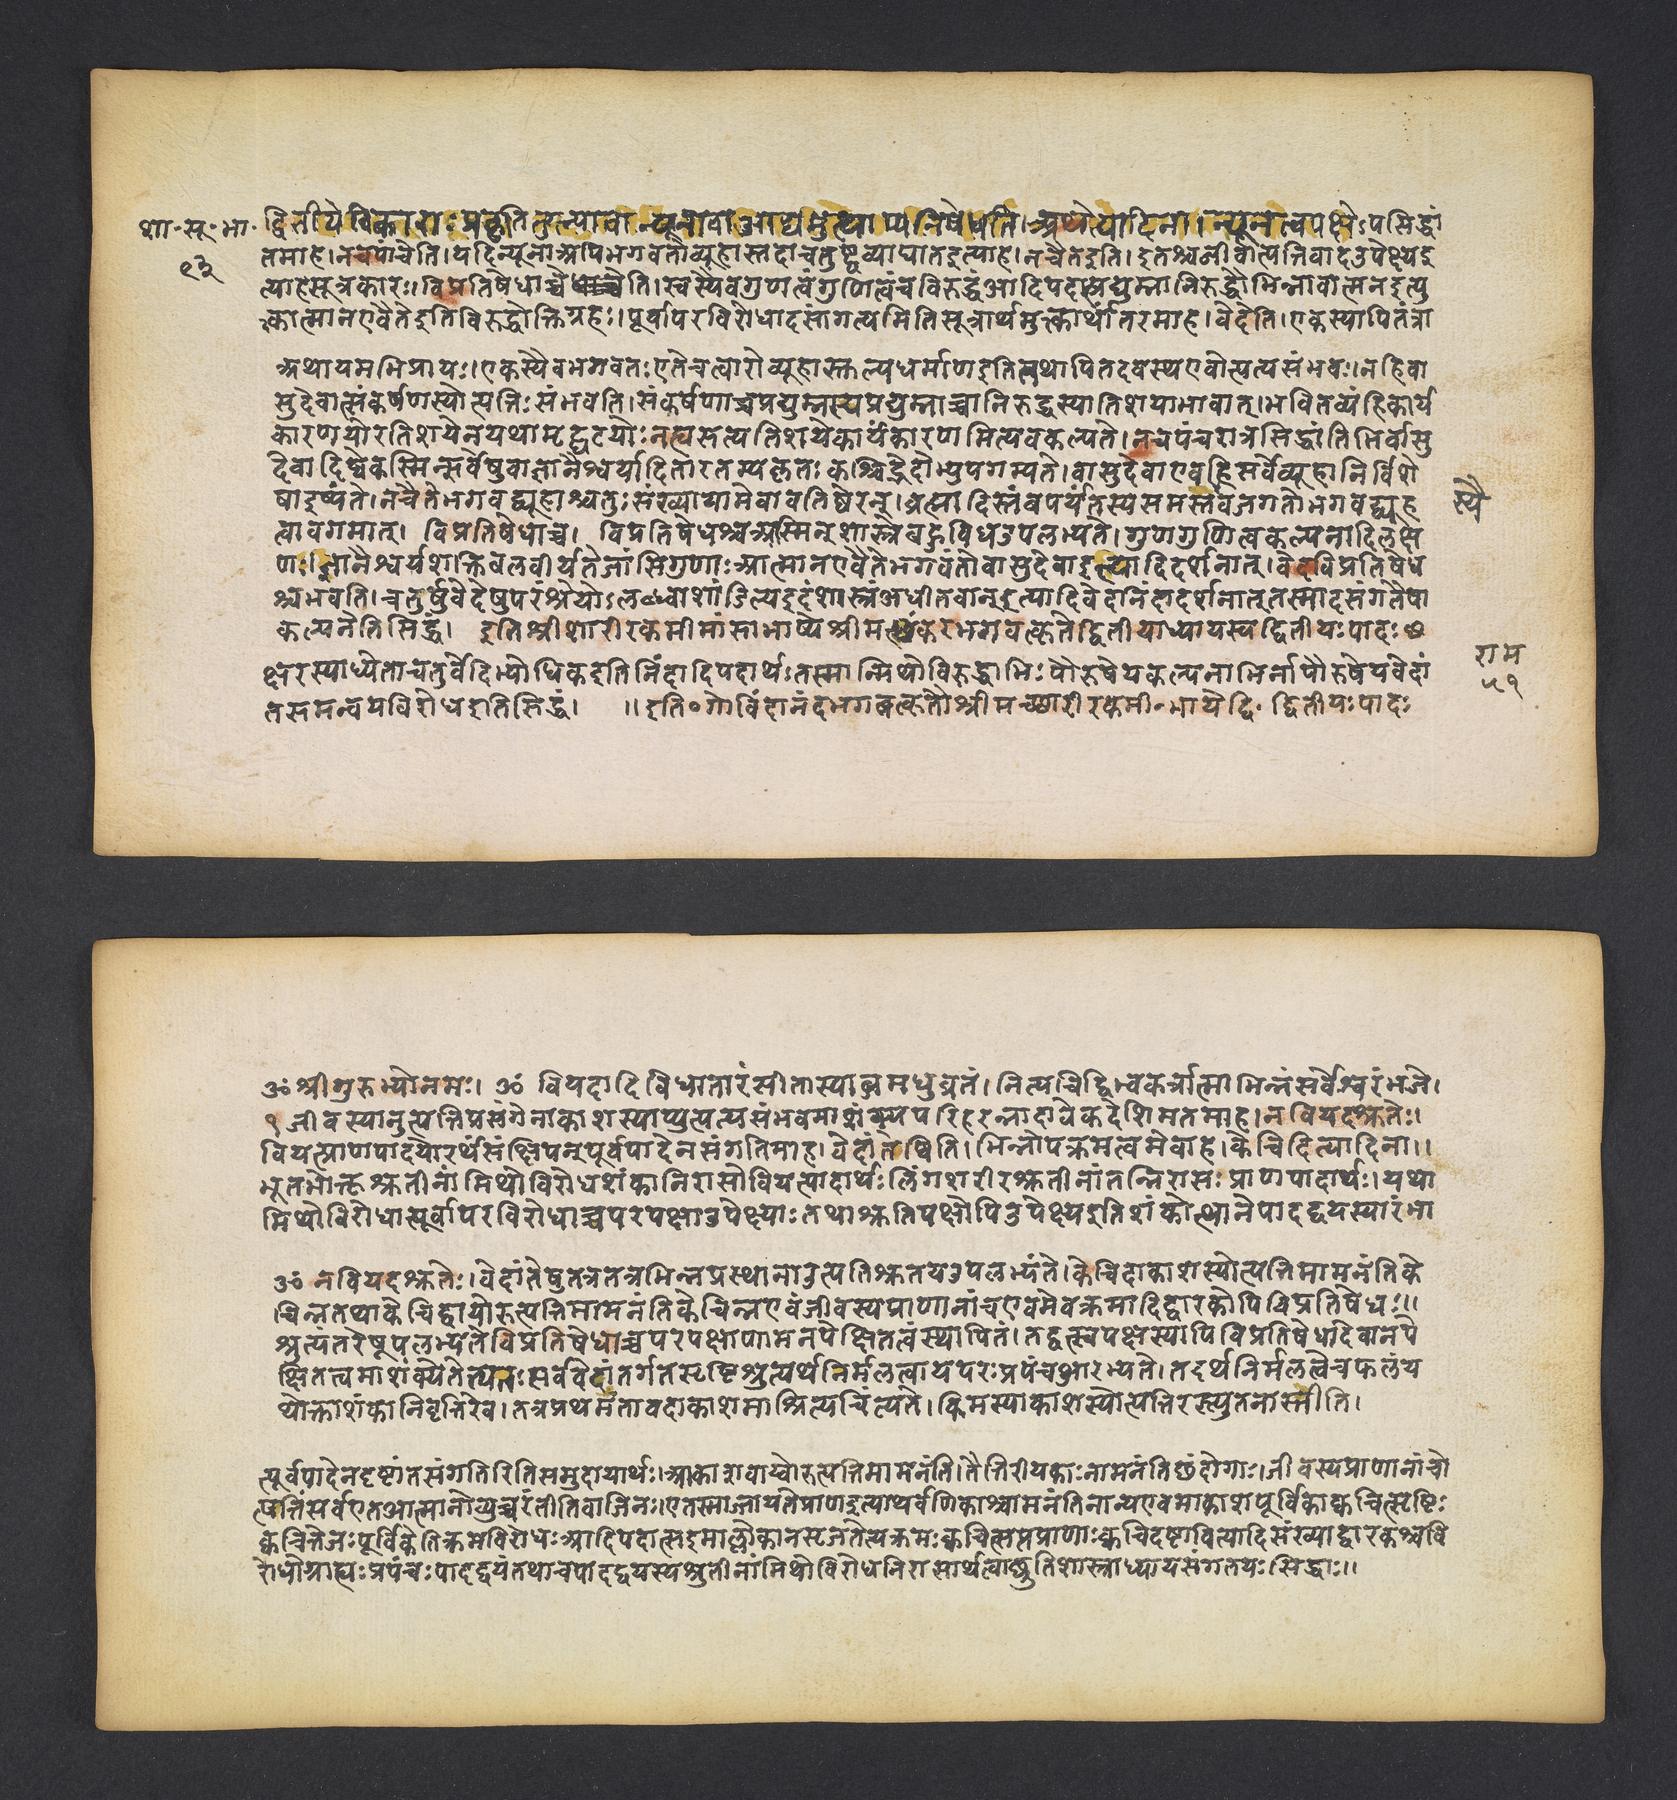 शा॰ सू॰ भा॰
९३
द्वितीये विकाराः प्रकृति
न्यूनावा
निषेधति। अथेत्यादिना। न्यूनत्वपक्षेऽपसिद्धां
तमाह। नचपांचेति। यदिन्यूनाअपिभगवतोव्यूहास्तदाचतुष्ट्वव्याघातइत्याह। नचैतइति। इतश्चजीवोत्पत्तिवादउपेक्ष्यइ
त्याहसूत्रकारः। विप्रतिषेधाच्चेति। स्वस्यैवगुणत्वंगुणित्वंचविरुद्धंआदिपदात्प्रद्युम्नानिरुद्धौभिन्नावात्मनइत्यु
क्त्वात्मानएवैतेइतिविरुद्धोक्तिग्रहः। पूर्वापरविरोधादसांगत्यमितिसूत्रार्थमुक्त्वार्थांतरमाह। वेदेति। एकस्यापितंत्रा
अथायमभिप्रायः। एकस्यैवभगवतःएतेचत्वारोव्यूहास्तुल्यधर्माणइतितथापितदवस्थएवोत्पत्यसंभवः। नहिवा
सुदेवात्संकर्षणस्योत्पत्तिःसंभवति। संकर्षणाच्चप्रद्युम्नस्यप्रद्युम्नाच्चानिरुद्धस्यातिशयाभावात्। भवितव्यंहिकार्य
कारणयोरतिशयेनयथामृद्घटयोःनह्यसत्यतिशयेकार्यंकारणमित्यवकल्पते। नचपंचरात्रसिद्धांतिभिर्वासु
देवादिष्वेकस्मिन्सर्वेषुवाज्ञानैश्वर्यादितारतम्यकृतःकश्चिद्भेदोभ्युपगम्यते। वासुदेवाएवहिसर्वेव्यूहानिर्विशे
षाइष्यंते। नचैतेभगवद्व्यूहाश्चतुःसंख्यायामेवावतिष्ठेरन्। ब्रह्मादिस्तंबपर्यंतस्यसमस्तवजगतोभगवद्व्यूह
स्यै
त्वावगमात्। विप्रतिषेधाच्च। विप्रतिषेधश्चअस्मिन्शास्त्रेबहुविधउपलभ्यते। गुणगुणित्वकल्पनादिलक्ष
णः। ज्ञानैश्वर्यशक्तिबलवीर्यतेजांसिगुणाःआत्मानएवैतेभगवंतोवासुदेवाइत्यादिदर्शनात्। वेदविप्रतिषेध
श्चभवति। चतुर्षुवेदेषुपरंश्रेयोऽलब्ध्वाशांडिल्यइदंशास्त्रंअधीतवान्इत्यादिवेदनिंदादर्शनात्तस्मादसंगतैषा
कल्पनेतिसिद्धं। इतिश्रीशारीरकमीमांसाभाष्येश्रीमच्छंकरभगवत्कृतेद्वितीयाध्यायस्यद्वितीयःपादः
क्षरस्याध्येताचतुर्वेदिभ्योधिकइतिनिंदादिपदार्थःतस्मान्मिथोविरुद्धाभिःपौरुषेयकल्पनाभिर्नापौरुषेयवेदां
राम
५१
तसमन्वयविरोधइतिसिद्धं। ॥इति॰गोविंदानंदभगवत्कृतौश्रीमच्छारीरकमी॰भाष्येद्वि॰ द्वितीयःपादः
ॐश्रीगुरुभ्योनमः। ॐ वियदादिविधातारंसीतास्याब्जमधुव्रतं। नित्यचिद्विश्वकर्त्रात्माभिन्नंसर्वेश्वरंभजे।
१ जीवस्यानुत्पत्तिप्रसंगेनाकाशस्याप्युत्पत्यसंभवमाशंक्यपरिहरन्नादावेकदेशिमतमाह। नवियदश्रुतेः।
वियत्प्राणपादयोरर्थंसंक्षिपन्पूर्वपादेनसंगतिमाह। वेदांतेष्विति। भिन्नोपक्रमत्वमेवाह। केचिदित्यादिना॥
भूतभोक्तृश्रुतीनांमिथोविरोधशंकानिरासोवियत्पादार्थःलिंगशरीरश्रुतीनांतन्निरासःप्राणपादार्थः। यथा
मिथोविरोधात्पूर्वापरविरोधाच्चपरपक्षाउपेक्ष्याःतथाश्रुतिपक्षोपिउपेक्ष्यइतिशंकोत्थानेपादद्वयस्यारंभा
ॐ नवियदश्रुतेः। वेदांतेषुतत्रतत्रभिन्नप्रस्थानाउत्पतिश्रुतयउपलभ्यंते। केचिदाकाशस्योत्पत्तिमामनंतिके
चिन्नतथाकेचिद्वायोरुत्पत्तिमामनंतिकेचिन्नएवंजीवस्यप्राणानांचएवमेवक्रमादिद्वारकोपिविप्रतिषेधः॥
श्रुत्यंतरेषूपलभ्यतेविप्रतिषेधाच्चपरपक्षाणामनपेक्षितत्वंस्थापितं। तद्वत्स्वपक्षस्यापिविप्रतिषेधादेवानपे
क्षितत्वमाशंक्येतेत्यतःसर्ववेदांतर्गतसृष्टिश्रुत्यर्थनिर्मलत्वायपरःप्रपंचआरभ्यते। तदर्थनिर्मलत्वेचफलंय
थोक्ताशंकानिवृत्तिरेव। तत्रप्रथमंतावदाकाशमाश्रित्यचिंत्यते। किमस्याकाशस्योत्पत्तिरस्त्युतनास्तीति।
त्पूर्वपादेनदृष्टांतसंगतिरितिसमुदायार्थः। आकाशवाय्वोरुत्पत्तिमामनंति। तैत्तिरीयकाःनामनंतिछंदोगाः। जीवस्यप्राणानांचो
त्पत्तिंसर्वएतआत्मानोव्युच्चरंतीतिवाजिनः। एतस्माज्जायतेप्राणइत्याथर्वणिकाश्चामनंतिनान्यएवमाकाशपूर्विकाक्वचित्सृष्टिः
क्वचित्तेजःपूर्विकेतिक्रमविरोधःआदिपदात्सइमांल्लोकानसृजतेत्यक्रमःक्वचित्सप्तप्राणाःक्वचिदष्टावित्यादिसंख्याद्वारकश्चवि
रोधोग्राह्यःप्रपंचःपादद्वयंतथाचपादद्वयस्यश्रुतीनांमिथोविरोधनिरासार्थत्वाच्छ्रुतिशास्त्राध्यायसंगतयःसिद्धाः॥